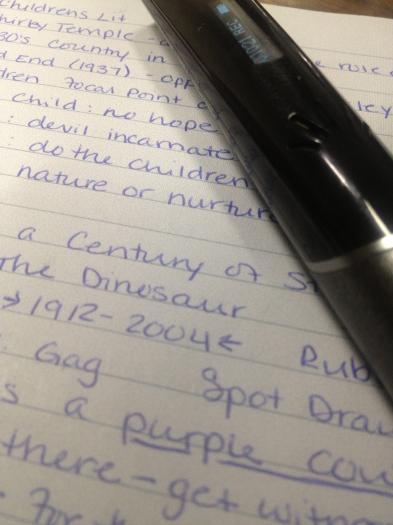 Childrens Lit
Temple
30's country in e role o
End (1937) - opp
dren focal point
child: no hope
: devil incarnate
: do the children
nature or nurtur
a Century of S
the Dinosaur
→ 1912-2004 ← Rub
: Gag Spot Draw
s a purple cou
there - get
for
REC